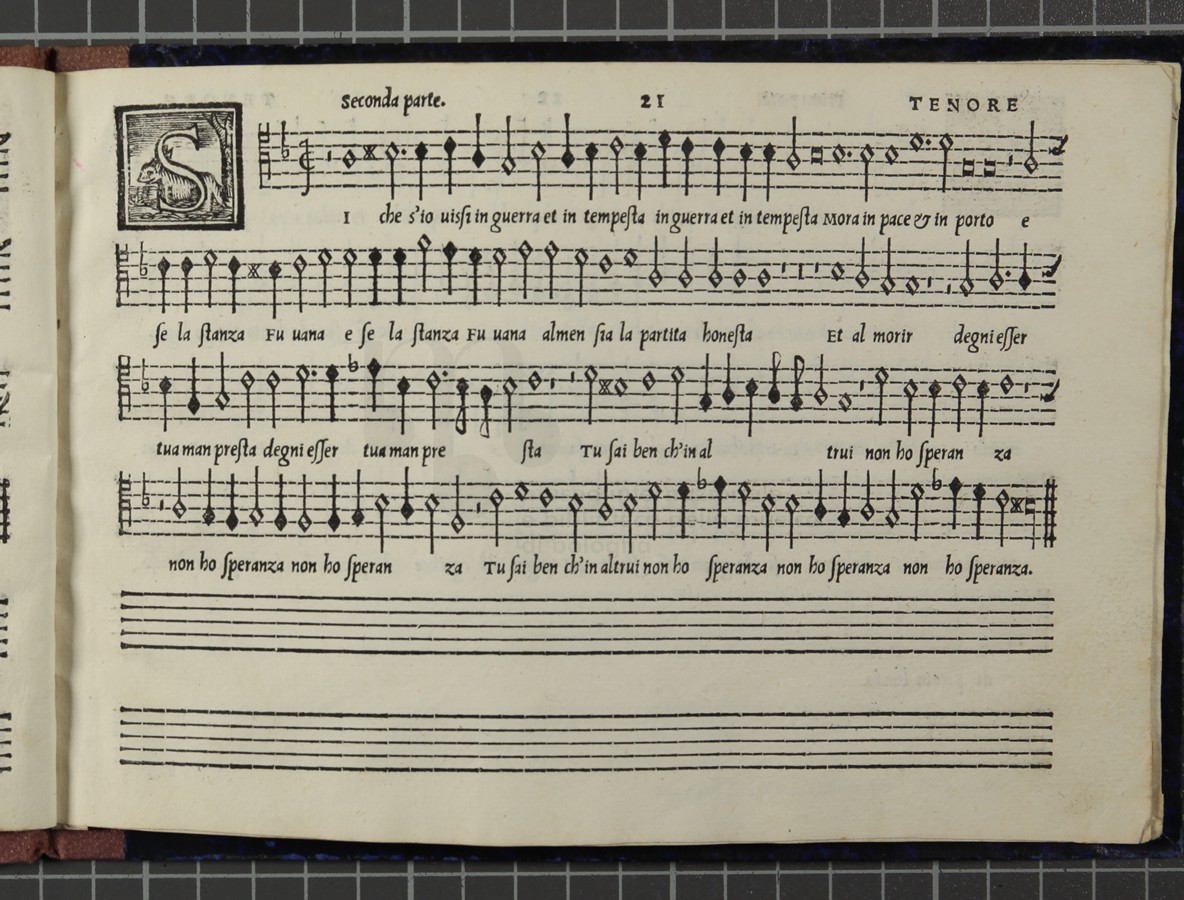 Seconda parte. 21 TENORE
S
I che s'io uissi in guerra et in tempesta in guerra et in tempesta Mora in pace & in porto e
se la stanza Fu uana e se la stanza Fu uana almen sia la partita honesta Et al morir degni esser
tua man presta degni esser tua man pre sta Tu sai ben ch'in al trui non ho speran za
non ho speranza non ho speran za Tu sai ben ch'in altrui non ho speranza non ho speranza non ho speranza.